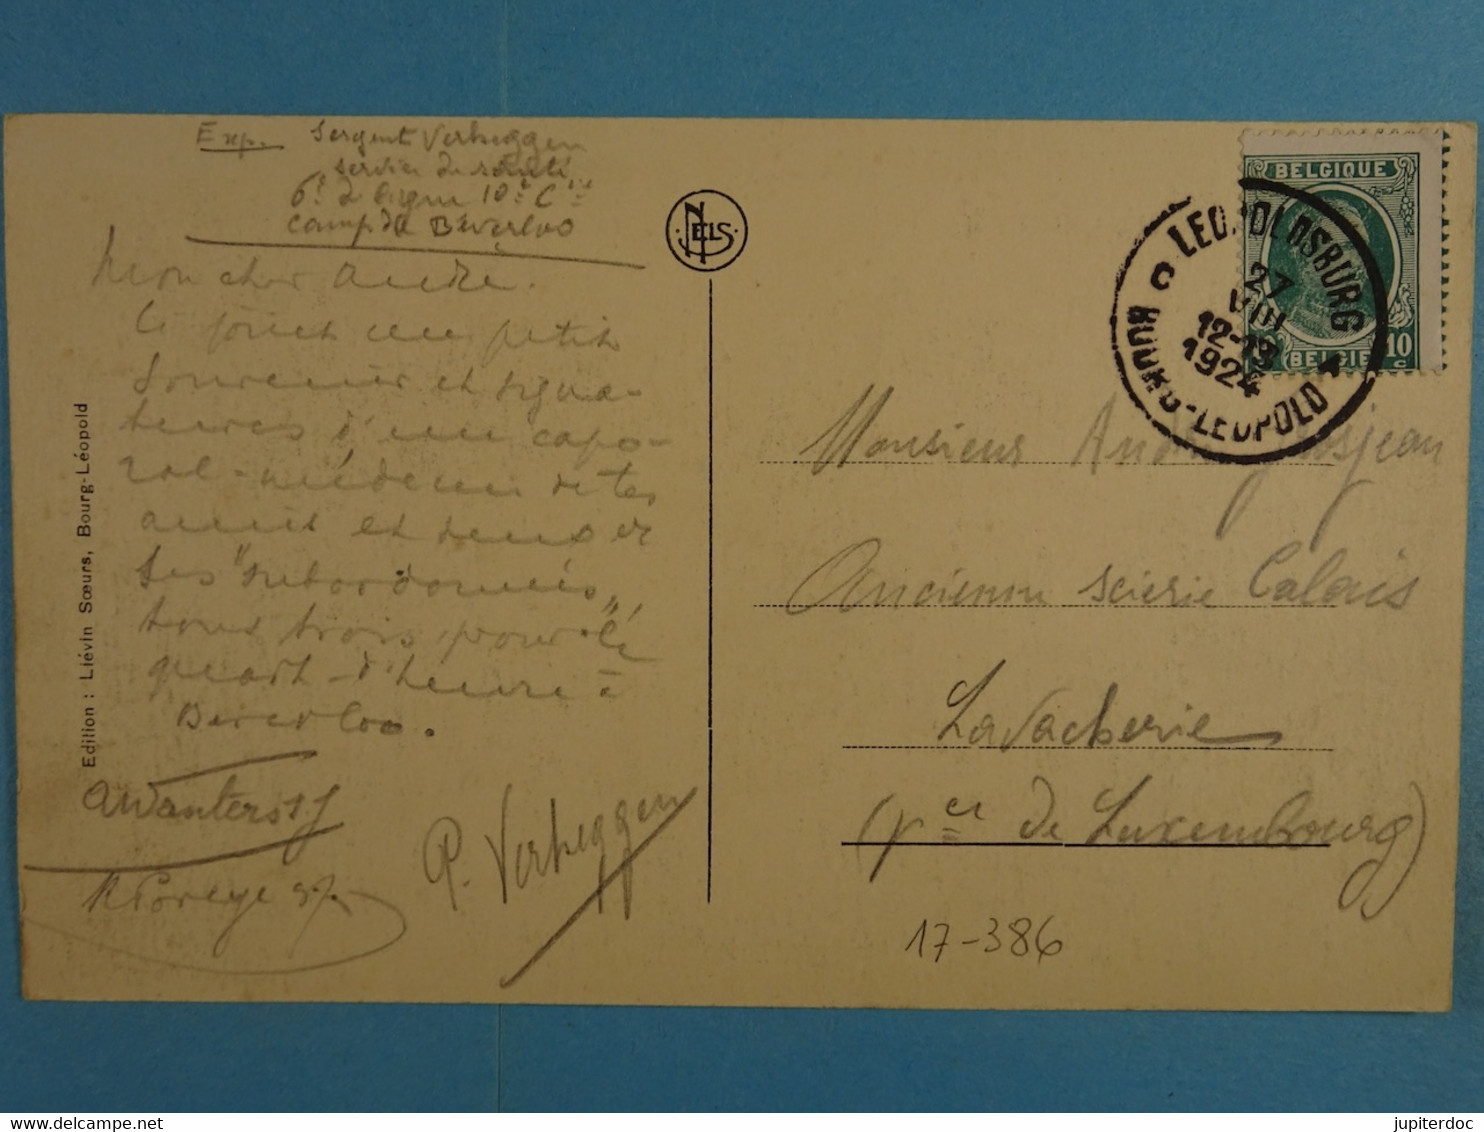 Exp. Sergent Verheggen
service de santé
6e de ligne 10e Cie
camp de Béverloo
Mon cher André.
Ci joint un petit
souvenir et signa-
tures d'un capo-
ral-médecin de tes
amis et de
ses "subordonnés"
tous trois, pour le
quart d'heure à
Beverloo.
AWauters
P. Verheggen
NELS
Edition : Liévin Sœurs, Bourg-Léopold
BELGIQUE
10 c
BELGIE
LEOPOLDSBURG
27
VIII
12-13
1924
BOURG-LEOPOLD
C
Monsieur André Grosjean
Ancienne scierie Calais
Lavacherie
(pce de Luxembourg)
17-386
delcampe.net
jupiterdoc